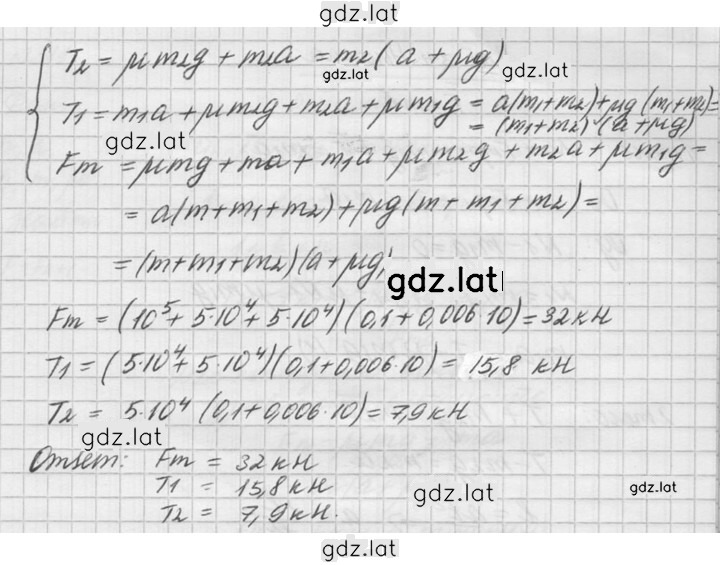 gdz.lat
T2 = μm2g + m2a = m2(a + μg)
gdz.lat
T1 = m1a + μm2g + m2a + μm1g = a(m1+m2)+μg(m1+m2)=
= (m1+m2)(a+μg)
gdz.lat
Fт = μmg + ma + m1a + μm2g + m2a + μm1g =
= a(m+m1+m2)+μg(m+m1+m2)=
= (m+m1+m2)(a+μg)
gdz.lat
Fт = (10⁵+5·10⁴+5·10⁴)(0,1+0,006·10)=32кН
T1 = (5·10⁴+5·10⁴)(0,1+0,006·10)= 15,8 кН
T2 = 5·10⁴(0,1+0,006·10)=7,9кН
gdz.lat
Ответ: Fт = 32кН
T1 = 15,8кН
T2 = 7,9кН.
gdz.lat
gdz.lat
gdz.lat